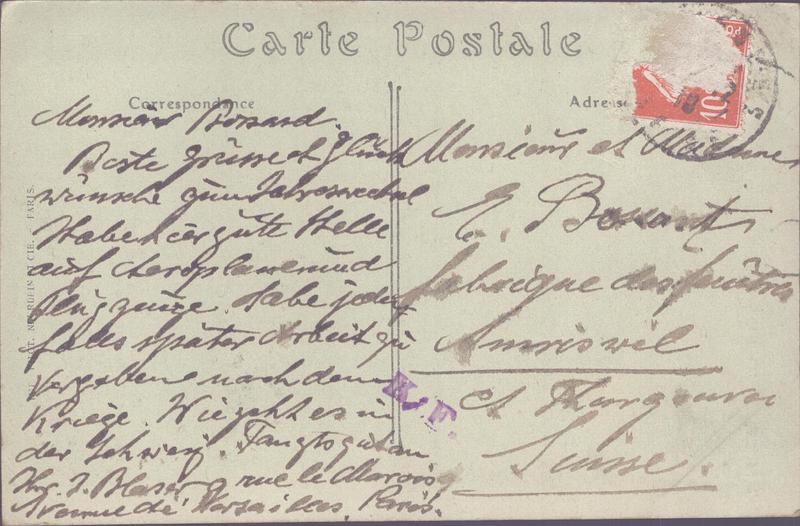 Carte Postale
Correspondance
Adresse
Monsieur Bossard.
Beste Grüsse et Glück
wünsche zum Jahreswechsel
Habe hier gute Stelle
auf Aeroplane und
Flugzeuge. Habe jeden
falls später Arbeit zu
vergeben nach dem
Kriege. Wie geht es in
der Schweiz. Fangts gut an
J. Blaser rue le Marois
Avenue de Versailles. Paris.
Monsieur et Madame
E. Bossart
fabrique des
Amriswil
Ct Thurgovie
Suisse.
K. F.
10
ND. PARIS.